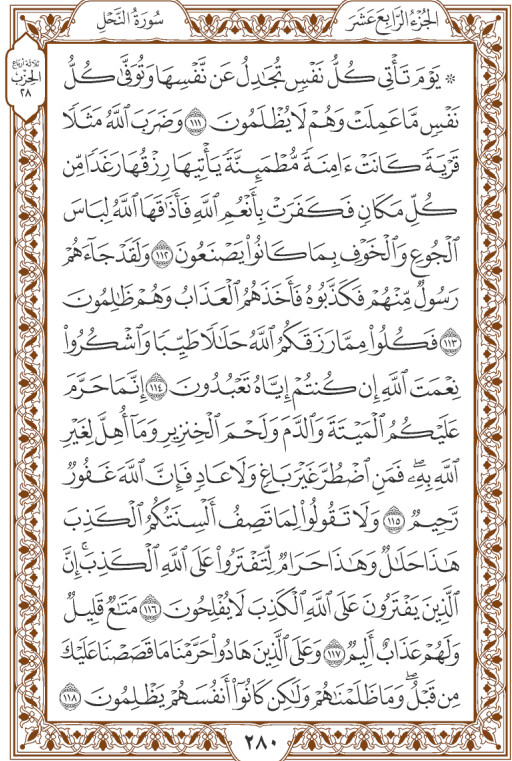 الجزء الرابع عشر
سورة النحل
ثلاثة أرباع
الحزب
٢٨
۞ يَوْمَ تَأْتِي كُلُّ نَفْسٍ تُجَٰدِلُ عَن نَّفْسِهَا وَتُوَفَّىٰ كُلُّ
نَفْسٍ مَّا عَمِلَتْ وَهُمْ لَا يُظْلَمُونَ ١١١ وَضَرَبَ ٱللَّهُ مَثَلًا
قَرْيَةً كَانَتْ ءَامِنَةً مُّطْمَئِنَّةً يَأْتِيهَا رِزْقُهَا رَغَدًا مِّن
كُلِّ مَكَانٍ فَكَفَرَتْ بِأَنْعُمِ ٱللَّهِ فَأَذَٰقَهَا ٱللَّهُ لِبَاسَ
ٱلْجُوعِ وَٱلْخَوْفِ بِمَا كَانُوا۟ يَصْنَعُونَ ١١٢ وَلَقَدْ جَآءَهُمْ
رَسُولٌ مِّنْهُمْ فَكَذَّبُوهُ فَأَخَذَهُمُ ٱلْعَذَابُ وَهُمْ ظَٰلِمُونَ
١١٣ فَكُلُوا۟ مِمَّا رَزَقَكُمُ ٱللَّهُ حَلَٰلًا طَيِّبًا وَٱشْكُرُوا۟
نِعْمَتَ ٱللَّهِ إِن كُنتُمْ إِيَّاهُ تَعْبُدُونَ ١١٤ إِنَّمَا حَرَّمَ
عَلَيْكُمُ ٱلْمَيْتَةَ وَٱلدَّمَ وَلَحْمَ ٱلْخِنزِيرِ وَمَآ أُهِلَّ لِغَيْرِ
ٱللَّهِ بِهِۦۖ فَمَنِ ٱضْطُرَّ غَيْرَ بَاغٍ وَلَا عَادٍ فَإِنَّ ٱللَّهَ غَفُورٌ
رَّحِيمٌ ١١٥ وَلَا تَقُولُوا۟ لِمَا تَصِفُ أَلْسِنَتُكُمُ ٱلْكَذِبَ
هَٰذَا حَلَٰلٌ وَهَٰذَا حَرَامٌ لِّتَفْتَرُوا۟ عَلَى ٱللَّهِ ٱلْكَذِبَۚ إِنَّ
ٱلَّذِينَ يَفْتَرُونَ عَلَى ٱللَّهِ ٱلْكَذِبَ لَا يُفْلِحُونَ ١١٦ مَتَٰعٌ قَلِيلٌ
وَلَهُمْ عَذَابٌ أَلِيمٌ ١١٧ وَعَلَى ٱلَّذِينَ هَادُوا۟ حَرَّمْنَا مَا قَصَصْنَا عَلَيْكَ
مِن قَبْلُۖ وَمَا ظَلَمْنَٰهُمْ وَلَٰكِن كَانُوٓا۟ أَنفُسَهُمْ يَظْلِمُونَ ١١٨
٢٨٠